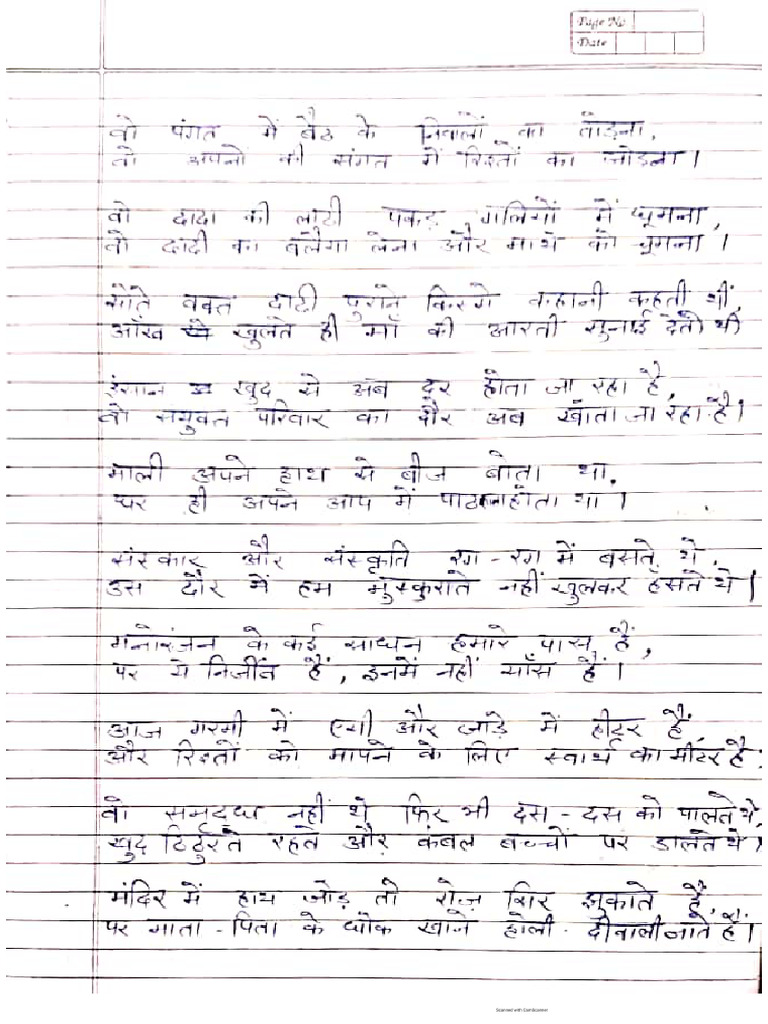 Page No
Date
वो पंगत में बैठ के निवालों का तोड़ना,
वो अपनों की संगत में रिश्तों का जोड़ना।
वो दादा की लाठी पकड़ गलियों में घूमना,
वो दादी का बलैया लेना और माथे को चूमना।
सोते वक्त दादी पुराने किस्से कहानी कहती थीं,
आँख खुलते ही माँ की आरती सुनाई देती थी
इंसान खुद से अब दूर होता जा रहा है,
वो सयुक्त परिवार का दौर अब खोता जा रहा है।
माली अपने हाथ से बीज बोता था,
घर ही अपने आप में पाठशाला होता था।
संस्कार और संस्कृति रग-रग में बसते थे,
उस दौर में हम मुस्कुराते नहीं खुलकर हँसते थे।
मनोरंजन के कई साधन हमारे पास हैं,
पर ये निर्जीव हैं, इनमें नहीं साँस हैं।
आज गरमी में एसी और जाड़े में हीटर हैं
और रिश्तों को मापने के लिए स्वार्थ का मीटर है
वो समद्ध नहीं थे फिर भी दस-दस को पालते थे,
खुद ठिठुरते रहते और कंबल बच्चों पर डालते थे।
मंदिर में हाथ जोड़ तो रोज़ सिर झुकाते हैं,
पर माता-पिता के धोक खाने होली-दीवाली जाते हैं।
Scanned with CamScanner